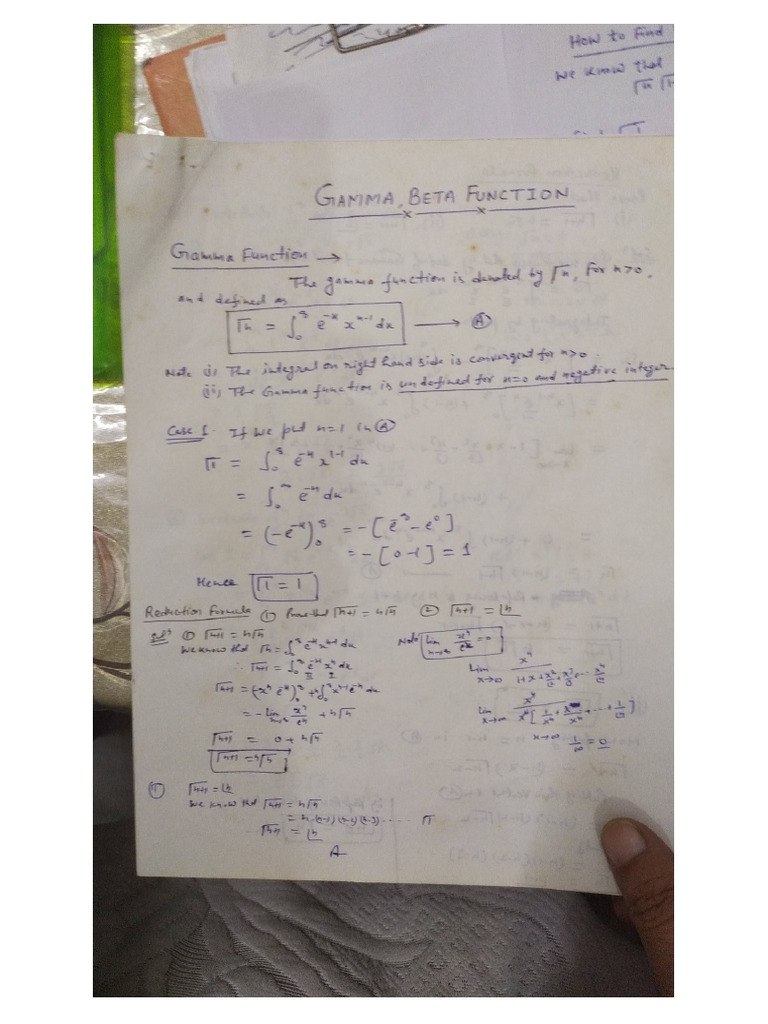 How to Find
We know that
Γn Γ1
Γ1
GAMMA, BETA FUNCTION
Gamma Function →
The gamma function is denoted by Γn, For n>0,
and defined as
Γn = ∫₀^∞ e^-x x^n-1 dx → Ⓐ
Note (i) The integral on right hand side is convergent for n>0.
(ii) The Gamma function is undefined for n=0 and negative integer.
Case 1. If we put n=1 in Ⓐ
Γ1 = ∫₀^∞ e^-x x^1-1 dx
= ∫₀^∞ e^-x dx
= (-e^-x)₀^∞ = -[e^-∞ - e^0]
= -[0-1] = 1
Hence Γ1 = 1
Reduction Formula ① Prove that Γn+1 = nΓn ② Γn+1 = ⌊n
Solⁿ ① Γn+1 = nΓn
We know that Γn = ∫₀^∞ e^-x x^n-1 dx
∴ Γn+1 = ∫₀^∞ e^-x x^n dx
II I
Γn+1 = (-x^n e^-x)₀^∞ + n∫₀^∞ x^n-1 e^-x dx
= -lim x→∞ x^n/e^x + nΓn
Γn+1 = 0 + nΓn
Γn+1 = nΓn
Note lim x→∞ x^n/e^x = 0
Lim x→0 x^n / 1+x+x²/⌊2+x³/⌊3+...x^n/⌊n
lim x→∞ x^n / x^n[1/x^n + + ...+1/⌊n]
x→∞ 1/∞ = 0
Ⅱ Γn+1 = ⌊n
We know that Γn+1 = nΓn
= n·(n-1)(n-2)(n-3)..... Γ1
Γn+1 = ⌊n
A